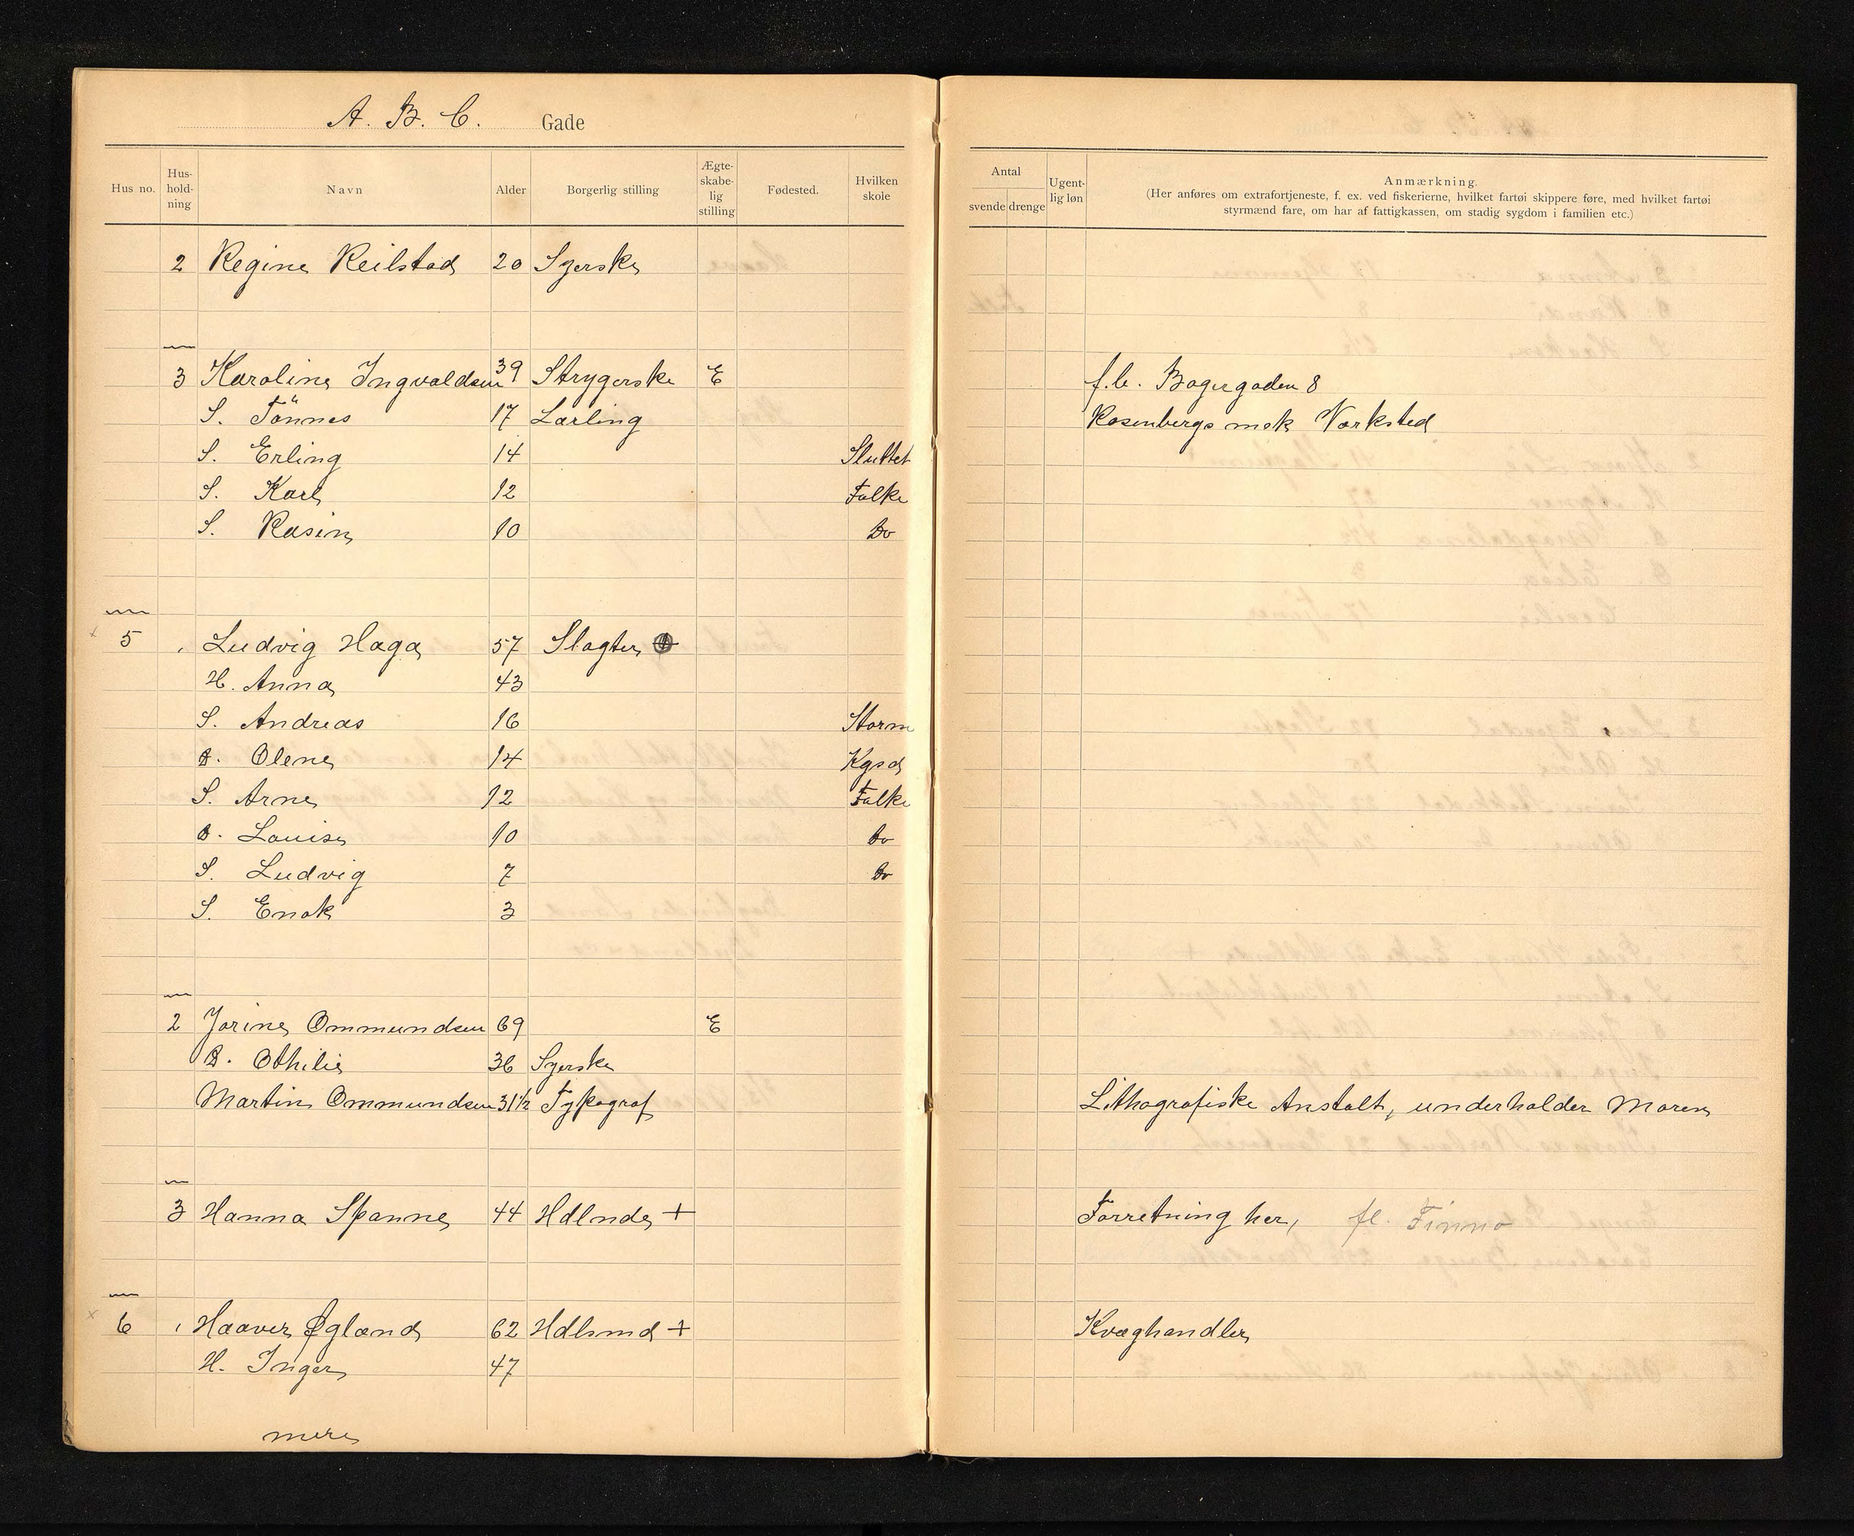 A. B. C. Gade
Hus no. Hus-hold-ning Navn Alder Borgerlig stilling Ægte-skabe-lig stilling Fødested. Hvilken skole
Antal svende drenge Ugent-lig løn Anmærkning.
(Her anføres om extrafortjeneste, f. ex. ved fiskerierne, hvilket fartøi skippere føre, med hvilket fartøi
styrmænd fare, om har af fattigkassen, om stadig sygdom i familien etc.)
2 Regine Reilstad 20 Syerske
3 Karoline Ingvaldsen 39 Strygerske E f.b. Bagergaden 8
S. Tönnes 17 Lærling Rosenbergs mek Værksted
S. Erling 14 Sluttet
S. Karl 12 Folke
S. Rasin 10 Do
5 1 Ludvig Haga 57 Slagter
H. Anna 43
S. Andreas 16 Storm
D. Olene 14 Kgsd
S. Arne 12 Folke
D. Louise 10 Do
S. Ludvig 7 Do
S. Enok 3
2 Jorine Ommundsen 69 E
D. Othilie 36 Syerske
Martin Ommundsen 31 1/2 Typograf Lithografiske Anstalt, underholder Moren
3 Hanna Spanne 44 Hdlnde + Forretning her, fl. Finnø
6 1 Haaver Øgland 62 Hdlsmd + Kvæghandler
H. Inger 47
mere